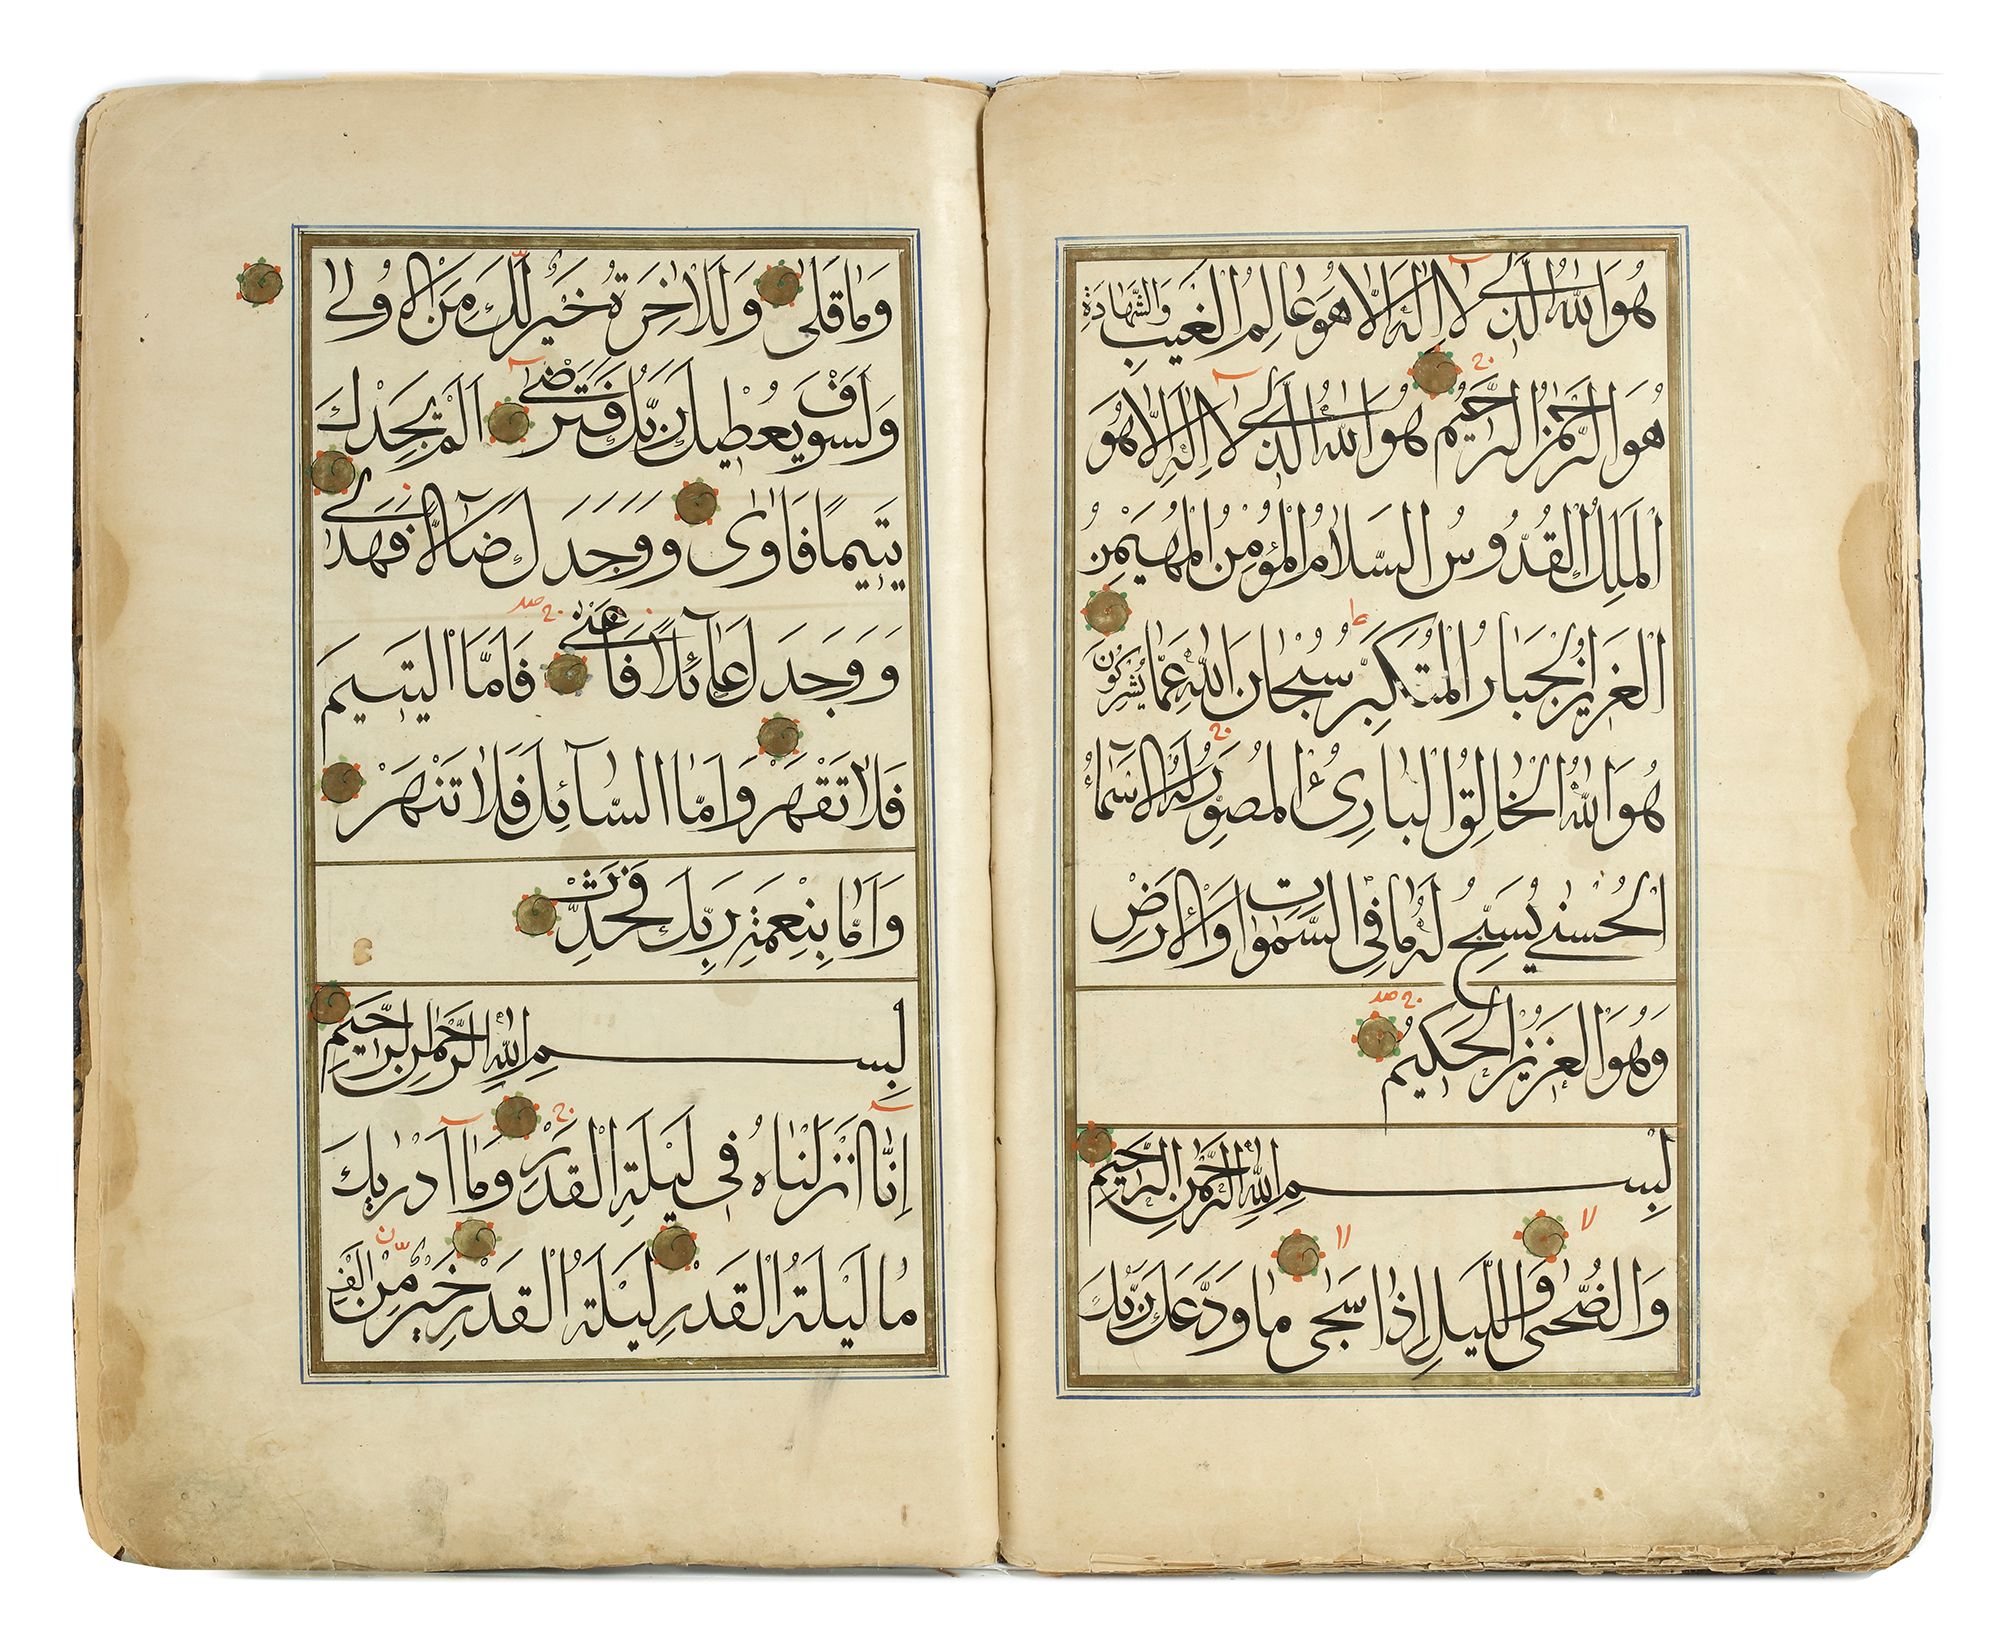 هُوَ اللّٰهُ الَّذي لا اِلٰهَ اِلّا هُوَ عالِمُ الغَيبِ وَالشَّهادَةِ
هُوَ الرَّحمٰنُ الرَّحيمُ هُوَ اللّٰهُ الَّذي لا اِلٰهَ اِلّا هُوَ
المَلِكُ القُدّوسُ السَّلامُ المُؤمِنُ المُهَيمِنُ
العَزيزُ الجَبّارُ المُتَكَبِّرُ سُبحانَ اللّٰهِ عَمّا يُشرِكونَ
هُوَ اللّٰهُ الخالِقُ البارِئُ المُصَوِّرُ لَهُ الاَسمآءُ
الحُسنىٰ يُسَبِّحُ لَهُ ما فِي السَّمٰواتِ وَالاَرضِ
وَهُوَ العَزيزُ الحَكيمُ
بِسمِ اللّٰهِ الرَّحمٰنِ الرَّحيمِ
وَالضُّحىٰ وَاللَّيلِ اِذا سَجىٰ ما وَدَّعَكَ رَبُّكَ
وَما قَلىٰ وَلَلاٰخِرَةُ خَيرٌ لَكَ مِنَ الاُولىٰ
وَلَسَوفَ يُعطيكَ رَبُّكَ فَتَرضىٰ اَلَم يَجِدكَ
يَتيمًا فَاٰوىٰ وَوَجَدَكَ ضآلًّا فَهَدىٰ
وَوَجَدَكَ عآئِلًا فَاَغنىٰ فَاَمَّا اليَتيمَ
فَلا تَقهَر وَاَمَّا السّآئِلَ فَلا تَنهَر
وَاَمّا بِنِعمَةِ رَبِّكَ فَحَدِّث
بِسمِ اللّٰهِ الرَّحمٰنِ الرَّحيمِ
اِنّا اَنزَلناهُ في لَيلَةِ القَدرِ وَمآ اَدرٰيكَ
ما لَيلَةُ القَدرِ لَيلَةُ القَدرِ خَيرٌ مِن اَلفِ